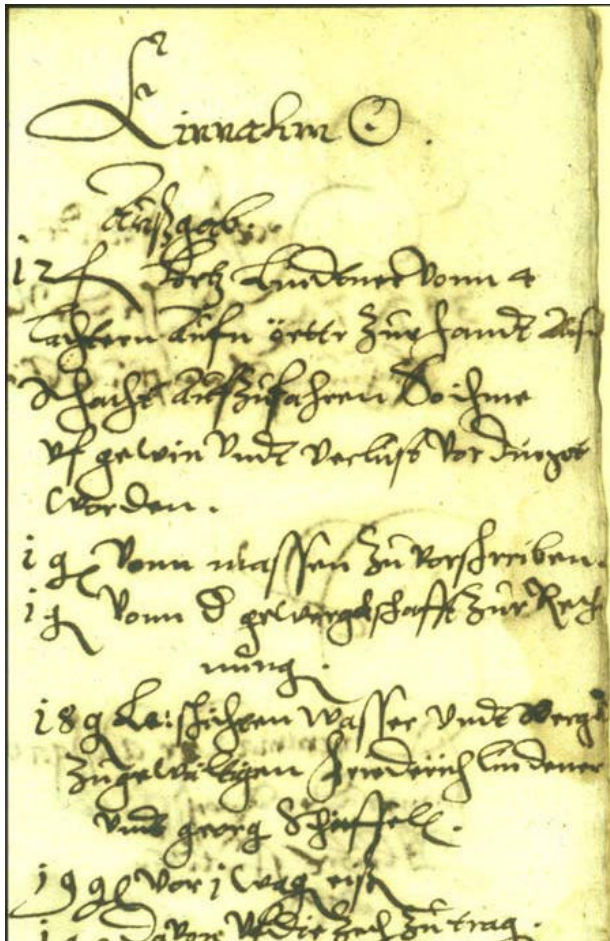 Einnahm
Außgab.
12 Lindtner vonn 4
Lachtern aufn örttr zur handt
schacht aufzufahren So ihme
vf gewin vndt verlust vor dinget
worden.
1 g vonn massen zu vorschreiben.
1 vonn d gewergkschafft zur Rech
nung.
18 g schichten wasser vndt Berg
zu gewältigen friederich lindener
vndt georg Scheffell.
19 g vor 1 wag eiß
davon vf die zech zu trag.